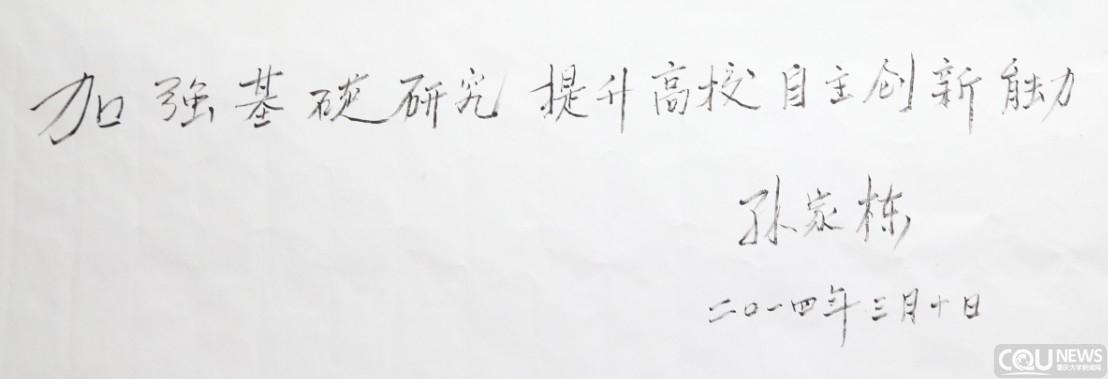 加强基础研究 提升高校自主创新能力
孙家栋
二〇一四年三月十日
CQU NEWS
重庆大学新闻网